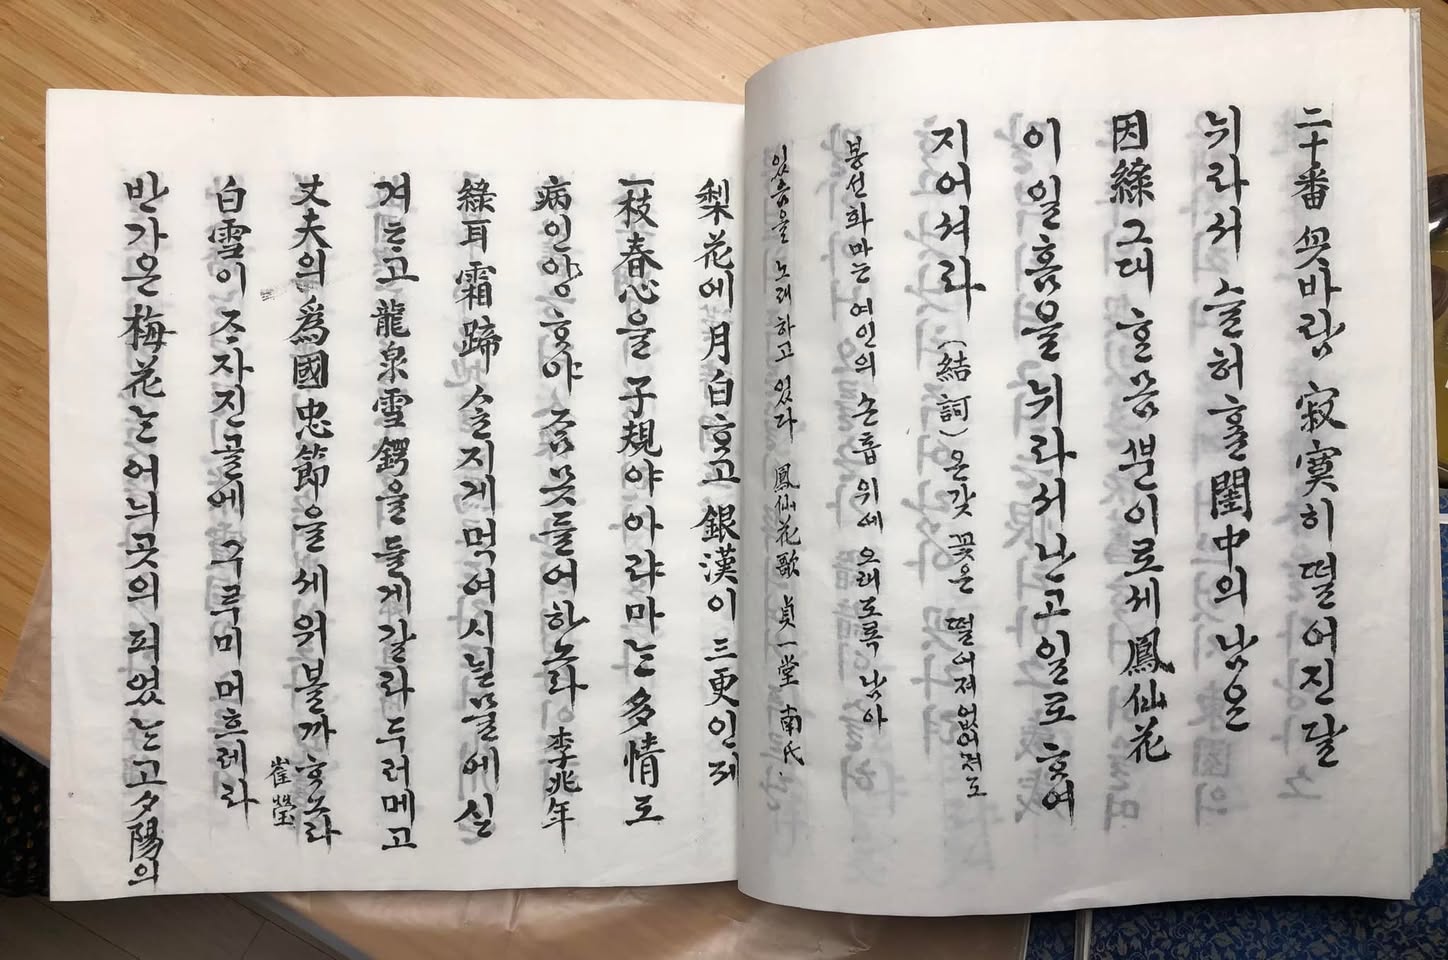 二十番 꼿바람 寂寞히 떨어진 달
뉘라서 슬허ᄒᆞᆯ 閨中의 남은
因緣 그대 ᄒᆞᆯ 믐 ᄲᅮᆫ이로세 鳳仙花
이 일흠을 뉘라서 난고 일로 ᄒᆞ여
지어셔라 (結詞) 온갖 꽃은 떨어져 없어져도
봉선화마는 여인의 손톱 위에 오래도록 남아
있음을 노래하고 있다 鳳仙花歌 貞一堂 南氏.
梨花에 月白ᄒᆞ고 銀漢이 三更인제
一枝春心을 子規야 아랴마는 多情도
病인양 ᄒᆞ야 ᄌᆞᆷ 못들어 하노라 李兆年
綠耳霜蹄 살지게 먹여 시닐믈에 싯
겨 ᄐᆞ고 龍泉雪鍔을 들게 갈라 두러메고
丈夫의 爲國忠節을 세워볼까 ᄒᆞ노라
崔瑩
白雪이 ᄌᆞ자진 골에 구루미 머흐레라
반가온 梅花ᄂᆞᆫ 어늬 곳의 피엿ᄂᆞᆫ고 夕陽의